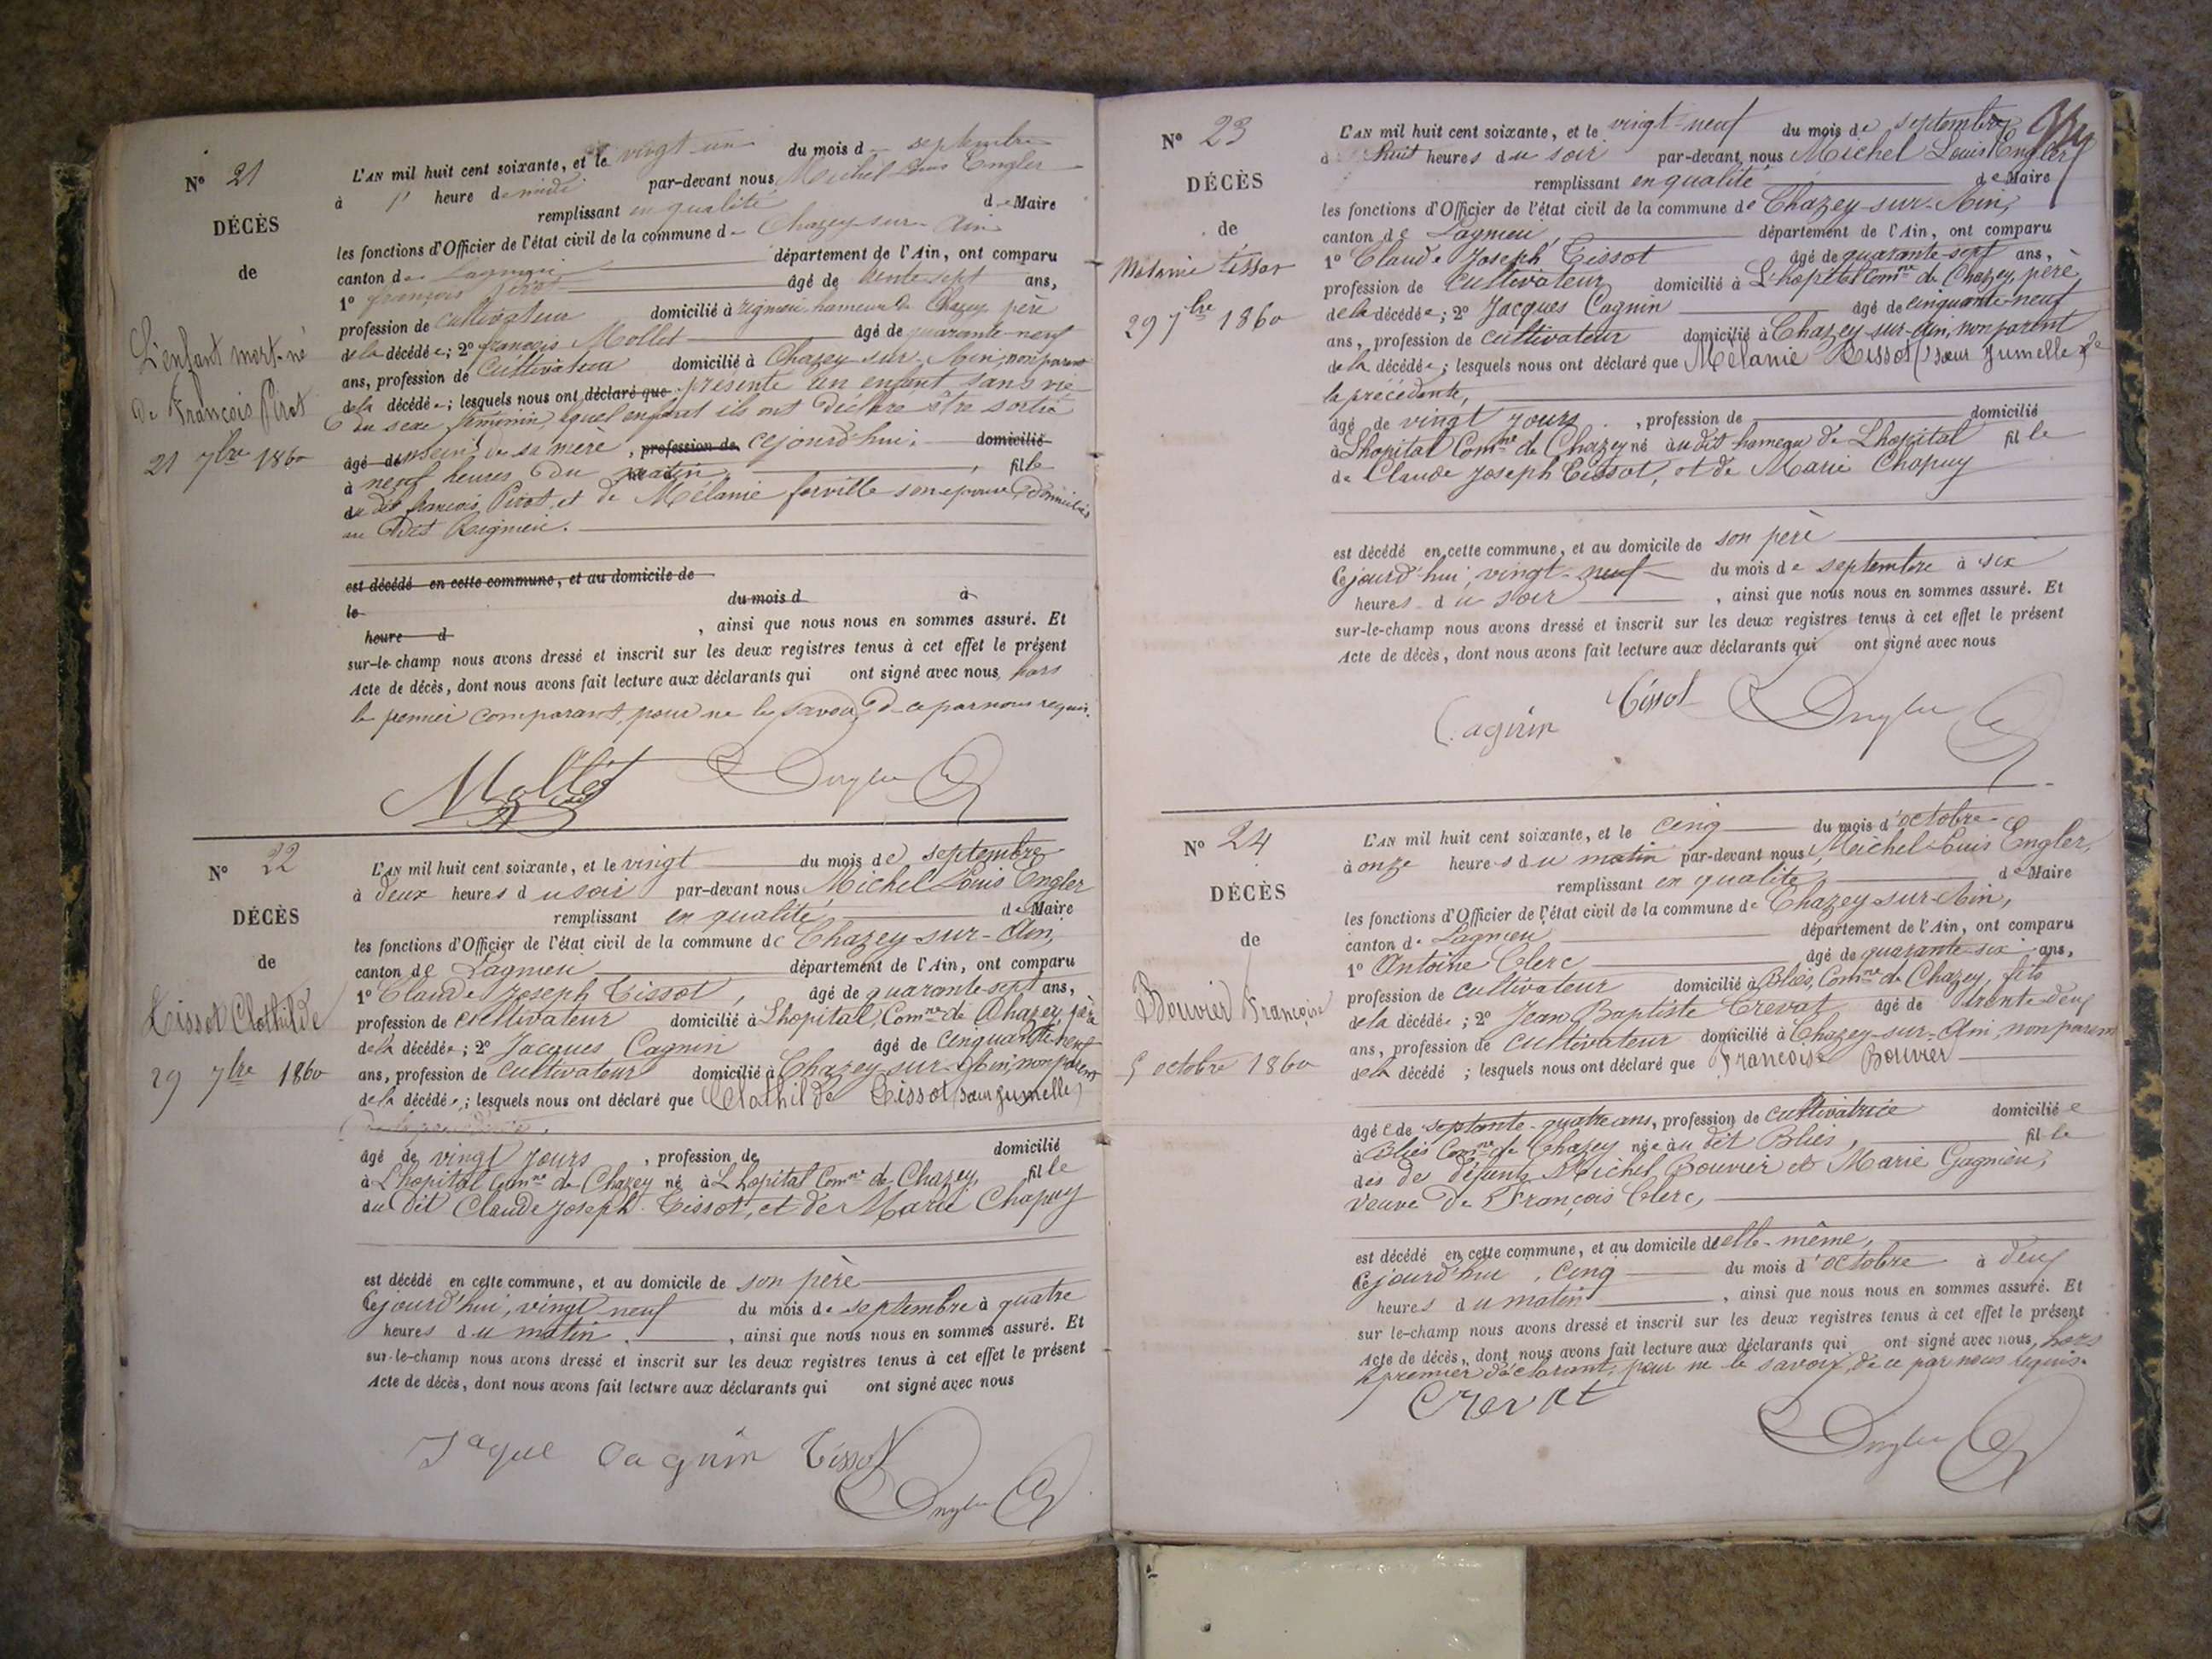 N° 21
DÉCÈS
de
L'enfant mort-né
De François Pirot
21 7bre 1860
L'AN mil huit cent soixante, et le vingt un du mois d septembre
à 1' heure de midi par-devant nous Michel Louis Engler
remplissant en qualité de Maire
les fonctions d'Officier de l'état civil de la commune d Chazey-sur-Ain
canton de Lagnieu département de l'Ain, ont comparu
1° françois Pirot âgé de trente sept ans,
profession de cultivateur domicilié à rignieu hameau de Chazey père
de la décédée; 2° françois Mollet âgé de quarante-neuf
ans, profession de Cultivateur domicilié à Chazey-sur-Ain, non parent
de la décédée; lesquels nous ont déclaré que présenté un enfant sans vie
du sexe féminin, lequel enfant ils ont déclaré être sortie
âgé de sein de sa mère, profession de cejourd'hui domicilié
à neuf heures du matin, fille
du dit francois Pirot, et de Mélanie forville son épouse domiciliés
au dit Rignieu.
est décédé en cette commune, et au domicile de
le du mois d à
heure d , ainsi que nous nous en sommes assuré. Et
sur-le-champ nous avons dressé et inscrit sur les deux registres tenus à cet effet le présent
Acte de décès, dont nous avons fait lecture aux déclarants qui ont signé avec nous, hors
le premier comparant, pour ne le savoir, de ce par nous requis.
Mollet Engler
N° 22
DÉCÈS
de
Tissot Clothilde
29 7bre 1860
L'AN mil huit cent soixante, et le vingt du mois de septembre
à deux heures du soir par-devant nous Michel Louis Engler
remplissant en qualité de Maire
les fonctions d'Officier de l'état civil de la commune de Chazey-sur-Ain,
canton de Lagnieu département de l'Ain, ont comparu
1° Claude Joseph Tissot, âgé de quarante-sept ans,
profession de cultivateur domicilié à Lhopital, Comne de Chazey, père
de la décédée; 2° Jacques Cagnin âgé de cinquante-neuf
ans, profession de cultivateur domicilié à Chazey-sur-Ain, non parent
de la décédée; lesquels nous ont déclaré que Clothilde Tissot (sœur jumelle)
âgé de vingt jours, profession de domicilié
à L'hopital Comne de Chazey né à L'hopital Comne de Chazey, fille
du dit Claude Joseph Tissot, et de Marie Chapuy
est décédé en cette commune, et au domicile de son père
Cejourd'hui, vingt-neuf du mois de septembre à quatre
heures du matin, ainsi que nous nous en sommes assuré. Et
sur-le-champ nous avons dressé et inscrit sur les deux registres tenus à cet effet le présent
Acte de décès, dont nous avons fait lecture aux déclarants qui ont signé avec nous
Jaque Cagnin Tissot
Engler
N° 23
DÉCÈS
de
Melanie Tissot
29 7bre 1860
L'AN mil huit cent soixante, et le vingt-neuf du mois de septembre
à huit heures du soir par-devant nous Michel Louis Engler
remplissant en qualité de Maire
les fonctions d'Officier de l'état civil de la commune de Chazey-sur-Ain,
canton de Lagnieu, département de l'Ain, ont comparu
1° Claude Joseph Tissot âgé de quarante-sept ans,
profession de Cultivateur domicilié à L'hopital Comne de Chazey, père
de la décédée; 2° Jacques Cagnin âgé de cinquante-neuf
ans, profession de cultivateur domicilié à Chazey-sur-Ain, non parent
de la décédée; lesquels nous ont déclaré que Mélanie Tissot (sœur Jumelle) de
la précédente,
âgé de vingt jours, profession de domicilié
à Lhopital Comne de Chazey né au dit hameau de Lhopital fille
de Claude Joseph Tissot, et de Marie Chapuy
est décédé en cette commune, et au domicile de son père
Cejourd'hui, vingt-neuf du mois de septembre à six
heures du soir, ainsi que nous nous en sommes assuré. Et
sur-le-champ nous avons dressé et inscrit sur les deux registres tenus à cet effet le présent
Acte de décès, dont nous avons fait lecture aux déclarants qui ont signé avec nous
Cagnin Tissot Engler
N° 24
DÉCÈS
de
Bouvier Françoise
5 octobre 1860
L'AN mil huit cent soixante, et le cinq du mois d'octobre
à onze heures du matin par-devant nous Michel-Louis Engler,
remplissant en qualité de Maire
les fonctions d'Officier de l'état civil de la commune de Chazey-sur-Ain,
canton de Lagnieu département de l'Ain, ont comparu
1° Antoine Clerc âgé de quarante-six ans,
profession de cultivateur domicilié à Bliès, Comne de Chazey, fils
de la décédée; 2° Jean Baptiste Crevat âgé de trente-deux
ans, profession de cultivateur domicilié à Chazey-sur-Ain, non parent
de la décédé; lesquels nous ont déclaré que Francoise Bouvier
âgée de septante-quatre ans, profession de cultivatrice domiciliée
à Bliès Comne de Chazey née au dit Bliès, fille
des de défunts Michel Bouvier et Marie Gagnieu,
Veuve De François Clerc,
est décédé en cette commune, et au domicile d'elle-même,
Cejourd'hui, cinq du mois d'octobre à deux
heures du matin, ainsi que nous nous en sommes assuré. Et
sur le-champ nous avons dressé et inscrit sur les deux registres tenus à cet effet le présent
Acte de décès, dont nous avons fait lecture aux déclarants qui ont signé avec nous, hors
le premier déclarant, pour ne le savoir, de ce par nous requis.
Crevat
Engler